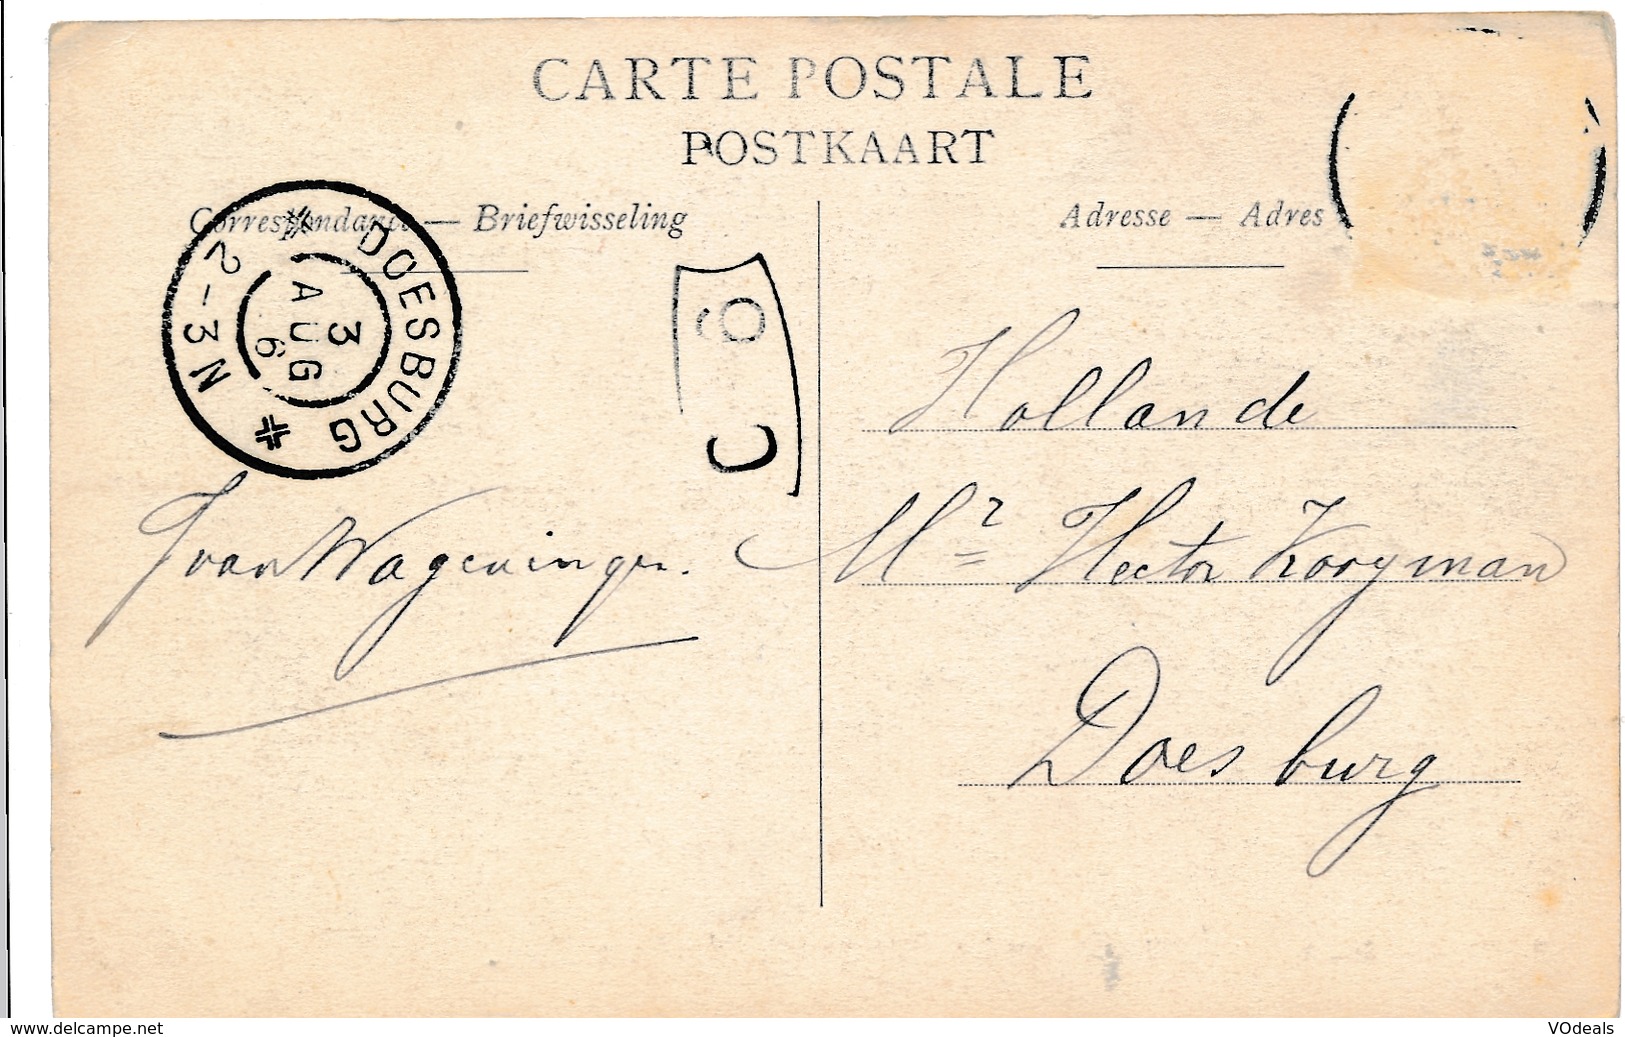 CARTE POSTALE
POSTKAART
Correspondance — Briefwisseling
Adresse — Adres
DOESBURG
3
AUG
6
2-3N
Hollande
Mr Hector Kooyman
Doesburg
J van Wageningen.
www.delcampe.net
VOdeals